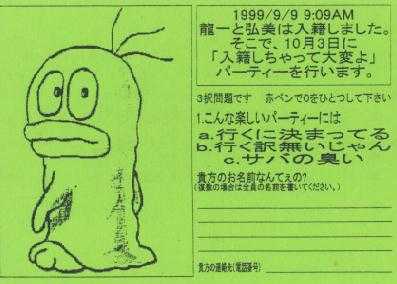 1999/9/9 9:09AM
龍一と弘美は入籍しました。
そこで、10月3日に
「入籍しちゃって大変よ」
パーティーを行います。
3択問題です　赤ペンで0をひとつして下さい
1.こんな楽しいパーティーには
a.行くに決まってる
b.行く訳無いじゃん
c.サバの臭い
貴方のお名前なんてぇの?
(複数の場合は全員の名前を書いてください。)
貴方の連絡先(電話番号)